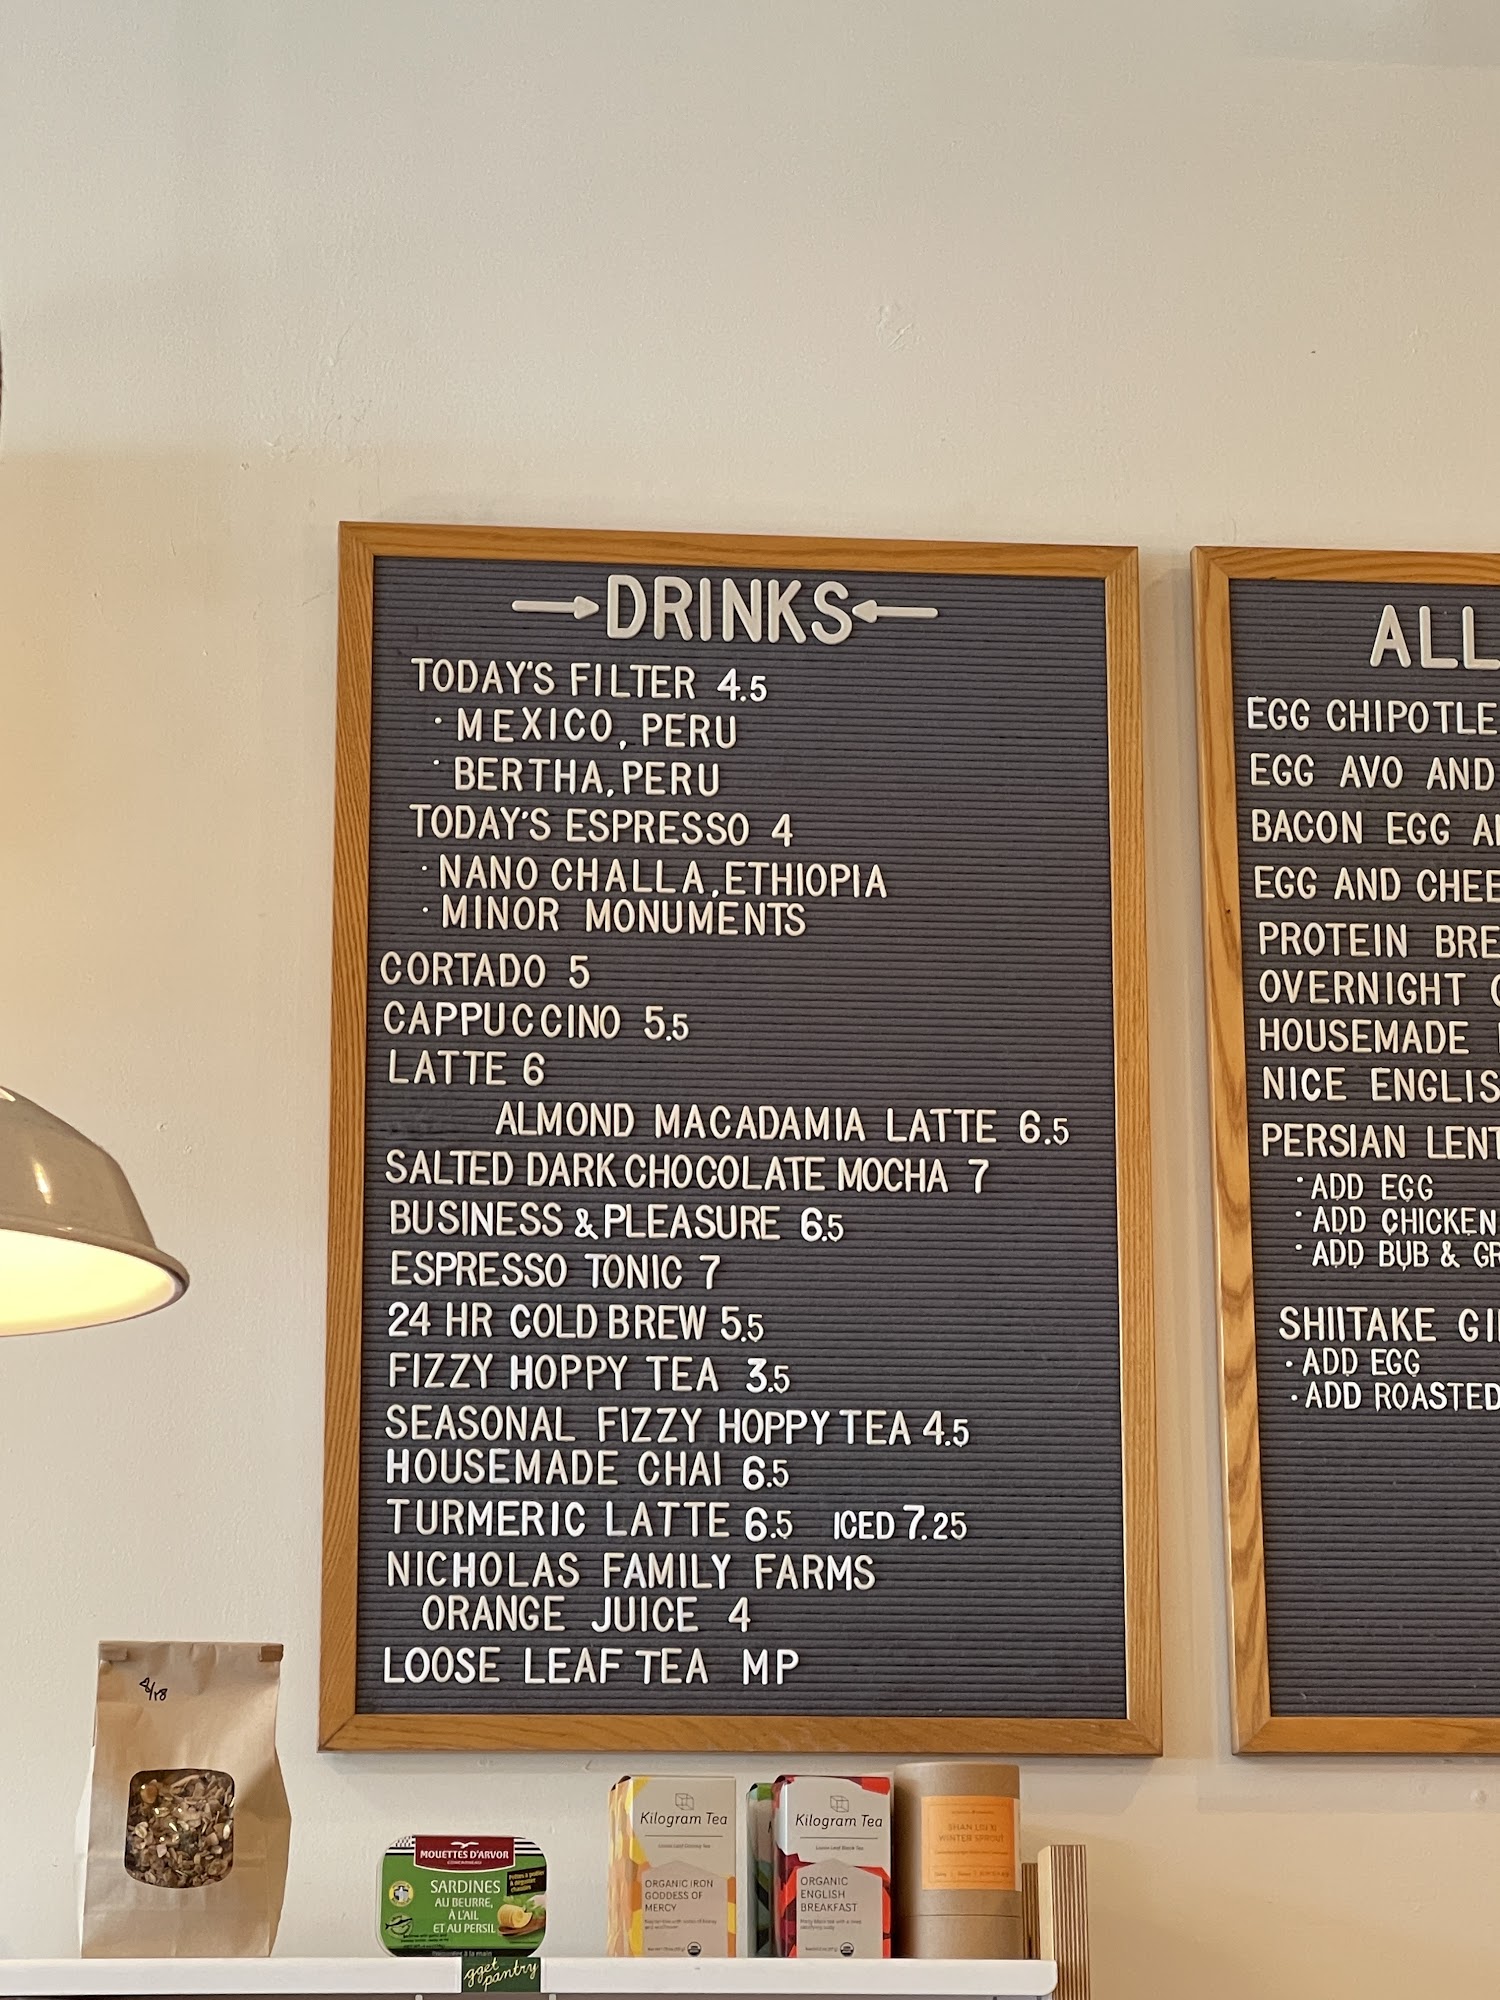 DRINKS
TODAY'S FILTER 4.5
· MEXICO, PERU
· BERTHA, PERU
TODAY'S ESPRESSO 4
· NANO CHALLA, ETHIOPIA
· MINOR MONUMENTS
CORTADO 5
CAPPUCCINO 5.5
LATTE 6
ALMOND MACADAMIA LATTE 6.5
SALTED DARK CHOCOLATE MOCHA 7
BUSINESS & PLEASURE 6.5
ESPRESSO TONIC 7
24 HR COLD BREW 5.5
FIZZY HOPPY TEA 3.5
SEASONAL FIZZY HOPPY TEA 4.5
HOUSEMADE CHAI 6.5
TURMERIC LATTE 6.5 ICED 7.25
NICHOLAS FAMILY FARMS
ORANGE JUICE 4
LOOSE LEAF TEA MP
ALL
EGG CHIPOTLE
EGG AVO AND
BACON EGG
EGG AND CHEE
PROTEIN BRE
OVERNIGHT
HOUSEMADE
NICE ENGLIS
PERSIAN LENT
· ADD EGG
· ADD CHICKEN
· ADD BUB & GR
SHIITAKE GI
· ADD EGG
· ADD ROASTED
MOUETTES D'ARVOR
SARDINES
AU BEURRE,
À L'AIL
ET AU PERSIL
gget
pantry
Kilogram Tea
ORGANIC IRON
GODDESS OF
MERCY
Kilogram Tea
Loose Leaf Black Tea
ORGANIC
ENGLISH
BREAKFAST
WINTER SPROUT